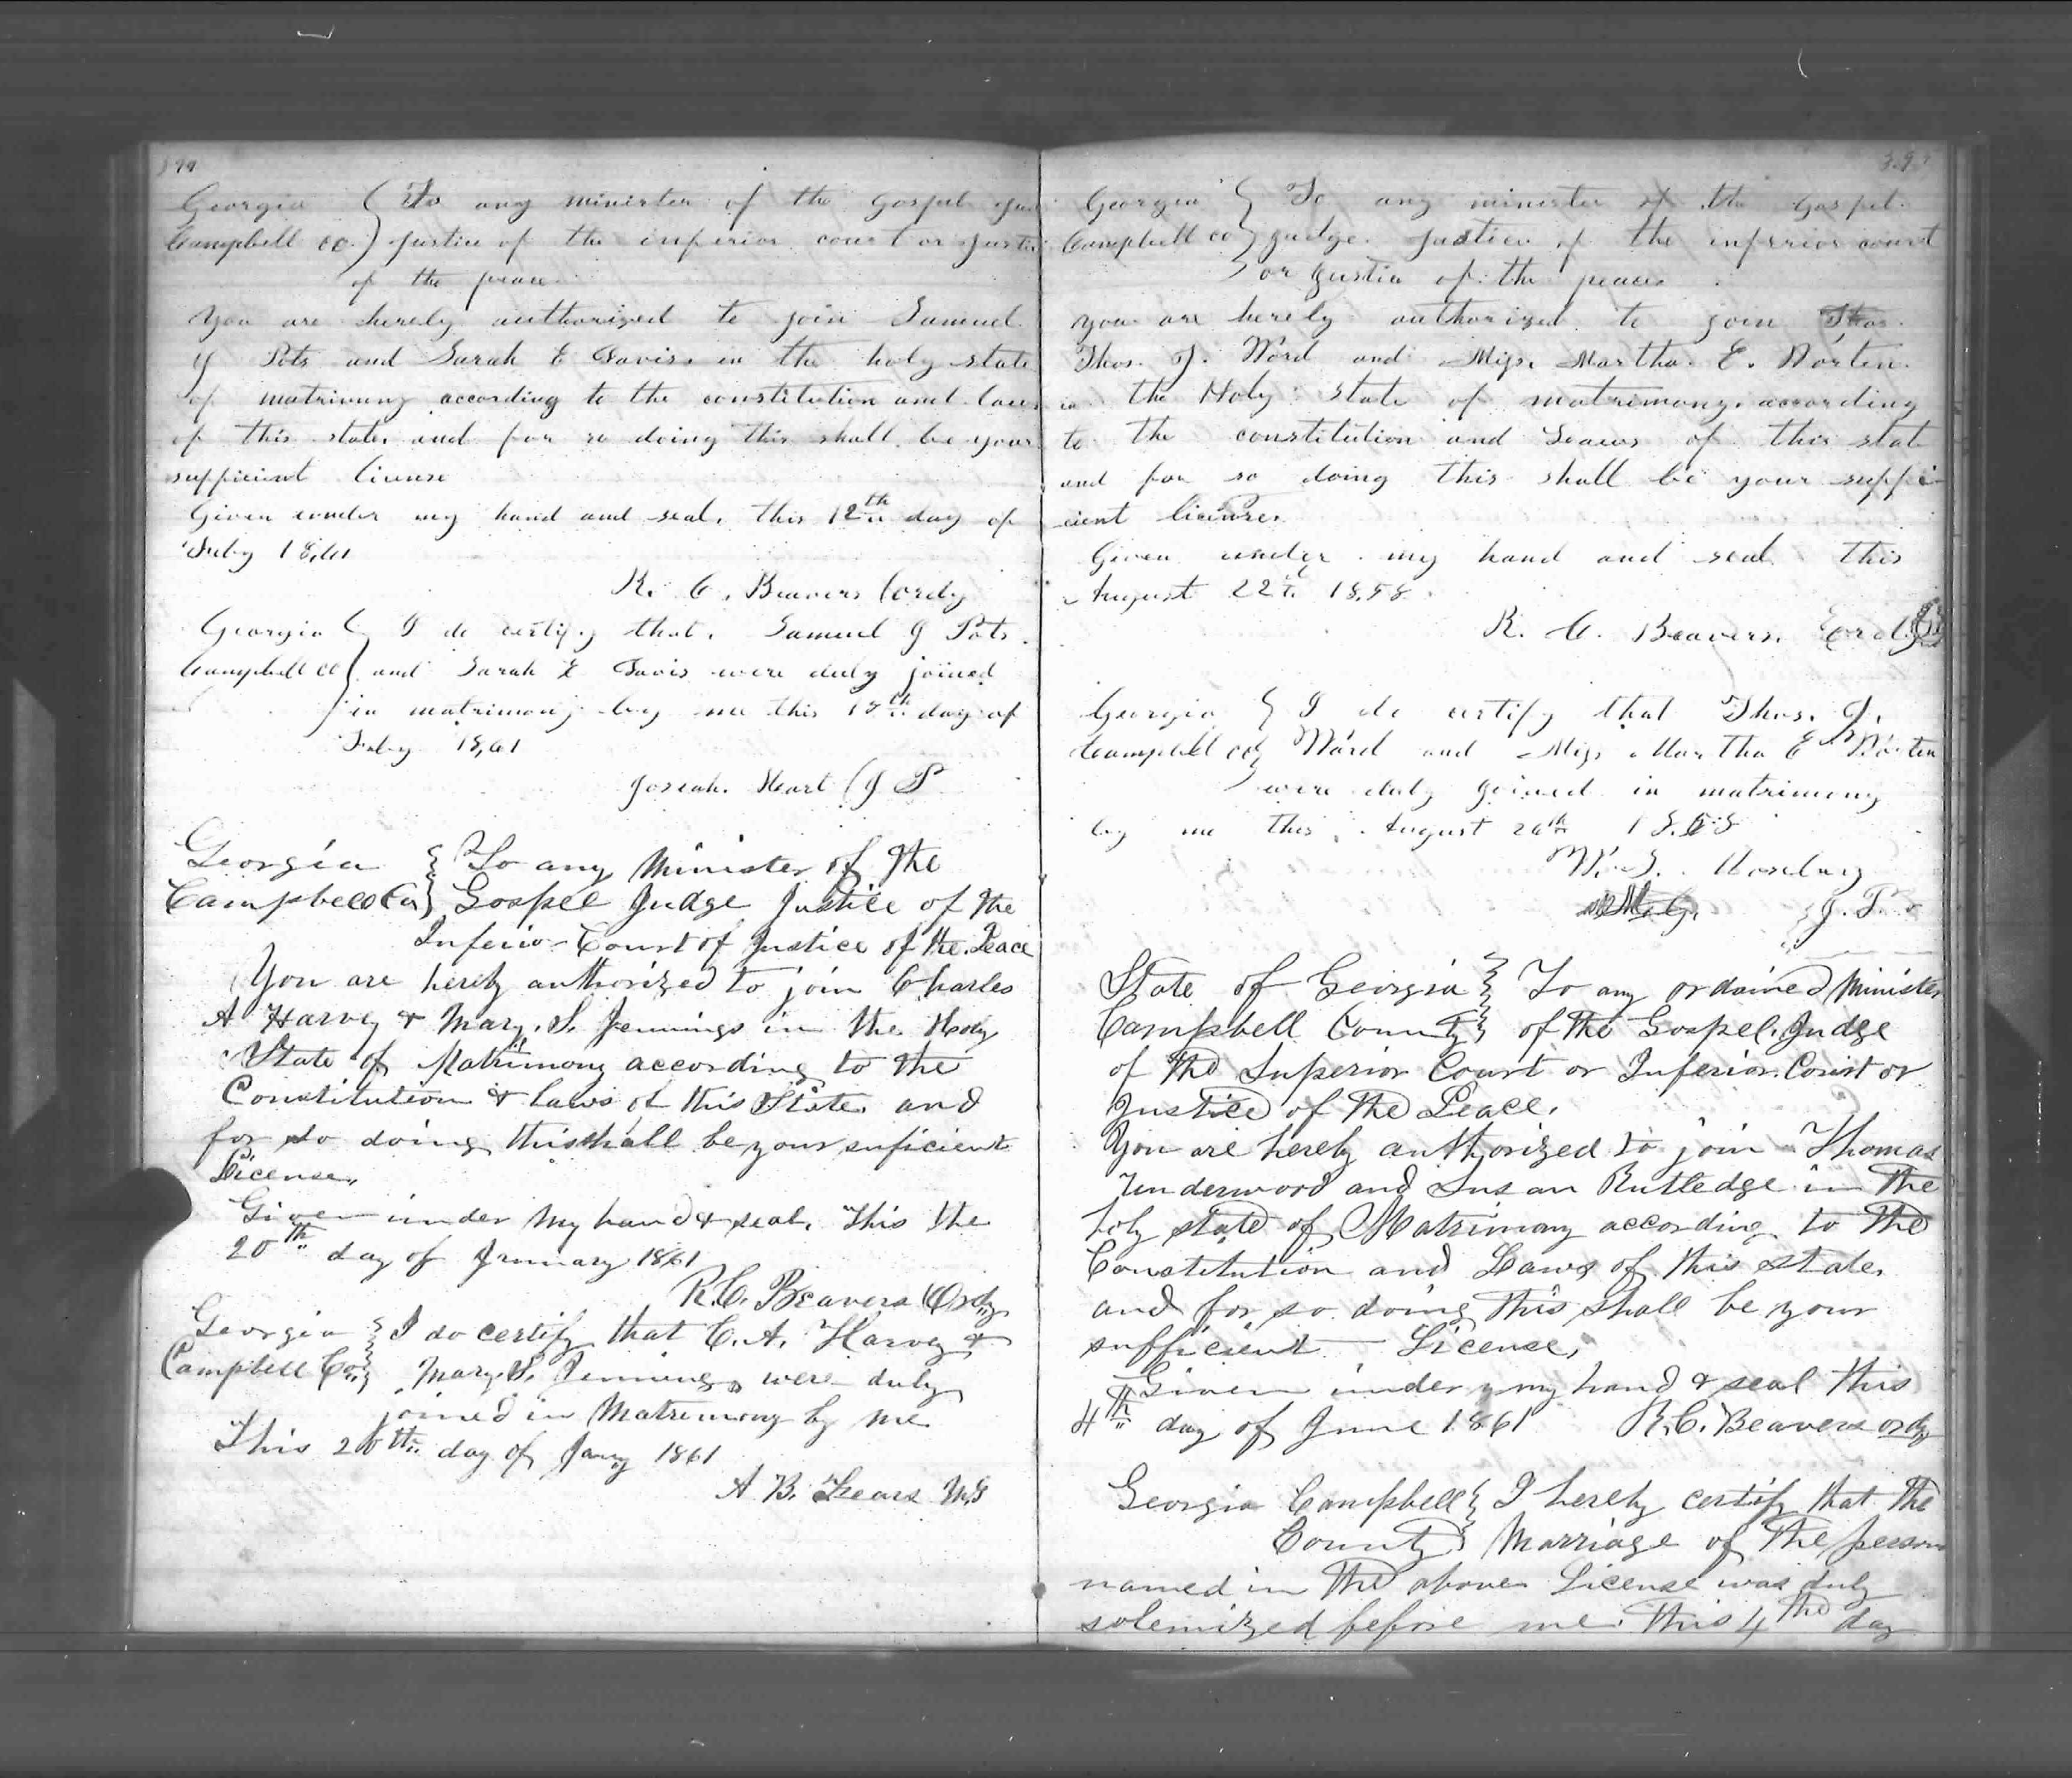 Georgia } To any minister of the gospel
Campbell co. } Justice of the inferior court or Justice
of the peace
You are hereby authorized to join Samuel
J Pots and Sarah E Davis in the holy state
of matrimony according to the constitution and laws
of this state and for so doing this shall be your
sufficient license
Given under my hand and seal, this 12th day of
Feby 1861
R. C. Beavers (ordy
Georgia } I do certify that Samuel J Pots
Campbell co } and Sarah E Davis were duly joined
in matrimony by me this day of
Feby 1861
Josiah (J P
Georgia } To any Minister of the
Campbell Co } Gospel Judge Justice of the
Inferior Court of Justice of the Peace
You are hereby authorized to join Charles
A Harvey & Mary. S. Jennings in the Holy
State of Matrimony according to the
Constitution & laws of this State and
for so doing this shall be your suficient
License,,
Given under my hand & seal, This the
20th day of January 1861
R. C. Beavers (Ordy
Georgia } I do certify that C. A. Harvey &
Campbell Co } Mary. S. Jennings were duly
joined in Matrimony by me
This 20th day of Jany 1861
A B. Fears MG
Georgia } To any minister of the gospel
Campbell co } Judge Justice of the inferior court
or Justice of the peace
you are hereby authorized to join Thos
Thos. J. Word and Miss. Martha. E. Worten
in the Holy state of matrimony according
to the constitution and Laws of this state
and for so doing this shall be your suffi-
cient license.
Given under my hand and seal this
August 22d 1858
R. C. Beavers. Ord
Georgia } I do certify that Thos. J.
Campbell co } Word and Miss Martha E Worten
were duly joined in matrimony
by me this August 26th 1858
J. P.
State of Georgia } To any ordained Minister
Campbell County } of the Gospel, Judge
of the Superior Court or Inferior Court or
Justice of the Peace.
You are hereby authorized to join Thomas
Underwood and Susan Rutledge in the
holy state of Matrimony according to the
Constitution and Laws of this state,
and for so doing this shall be your
sufficient License,
Given under my hand & seal this
4th day of June 1861 R. C. Beavers ordy
Georgia Campbell } I hereby certify that the
County } Marriage of the person
named in the above License was duly
solemized before me this 4th day